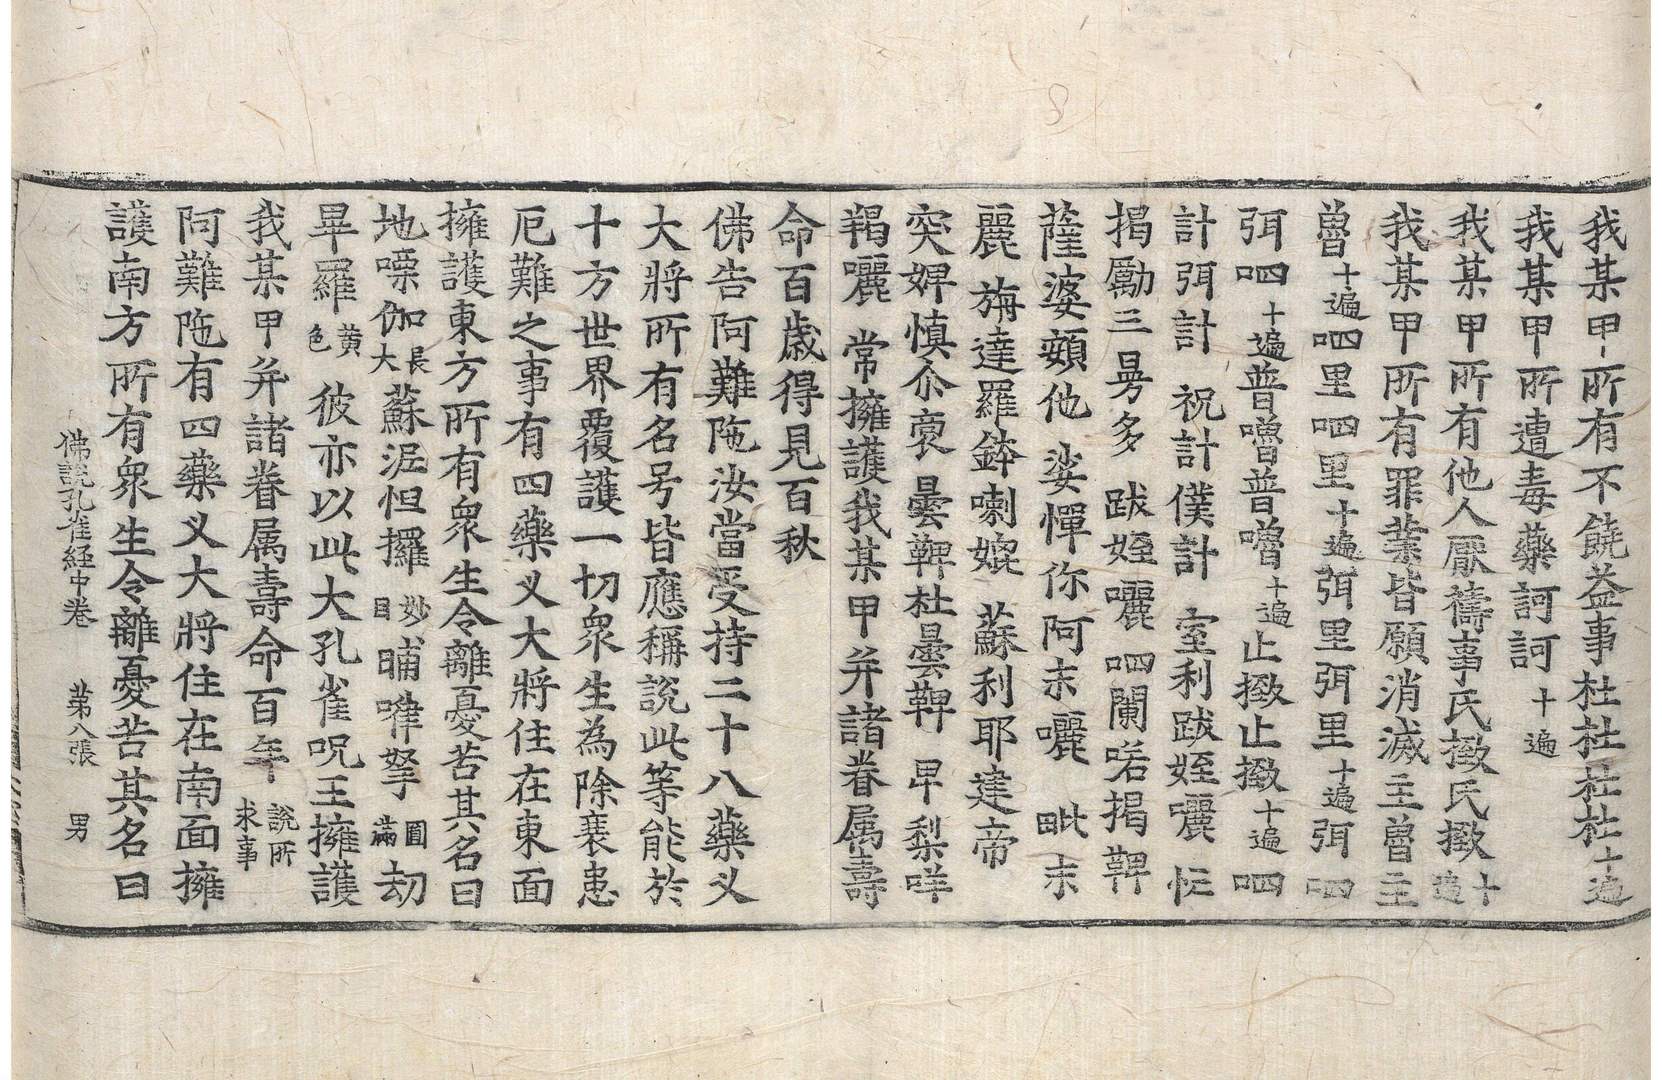 我某甲所有不饒益事杜杜杜杜十遍
我某甲所遭毒藥訶訶十遍
我某甲所有他人厭禱事氐撽氐撽十遍
我某甲所有罪業皆願消滅主曽主
曽十遍呬里呬里十遍弭里弭里十遍弭呬
弭呬十遍普嚕普嚕十遍止撽止撽十遍呬
計弭計 祝計僕計 室利跋姪囇
揭勵三曼多 跋姪囇 呬闌喏揭鞞
薩婆頞他 娑憚你阿末囇 毗末
麗 旃達羅鉢喇婫 蘇利耶達帝
突婢慎尒裒曇鞞杜曇鞞 卑梨咩
羯囇 常擁護我某甲并諸眷属壽
命百歳得見百秋
佛告阿難陁汝當受持二十八藥义
大將所有名号皆應稱說此等能於
十方世界覆護一切衆生為除衰患
厄難之事有四藥义大將住在東面
擁護東方所有衆生令離憂苦其名曰
地㗚伽長大蘇泥怛攞妙目晡㗭拏圓滿劫
畢羅黃色 彼亦以此大孔雀呪王擁護
我某甲并諸眷属壽命百年說所求事
阿難陁有四藥义大將住在南面擁
護南方所有衆生令離憂苦其名曰
佛説孔雀經中卷 第八張 男